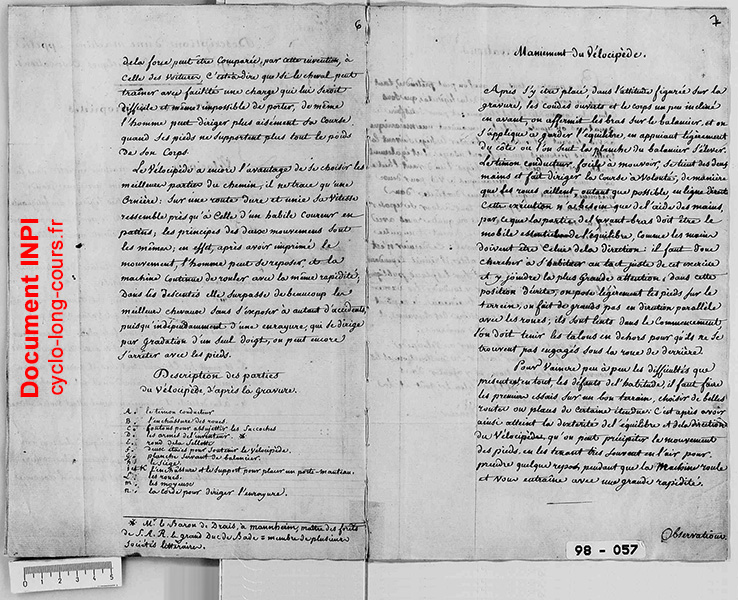 6
de la force peut être Comparée, par cette invention, à
Celle des Voitures, C'est à dire que si le cheval peut
traîner avec facilité une charge qui lui seroit
difficile et même impossible de porter, de même
l'homme peut diriger plus aisément sa Course
quand ses pieds ne supportent plus tout le poids
de son Corps.
Le Vélocipède a encore l'avantage de se choisir les
meilleures parties du chemin, il ne trace qu'une
Ornière: Sur une route dure et unie sa Vitesse
ressemble près qu'à Celle d'un habile Coureur en
pattins; les principes des deux mouvemens sont
les mêmes; en effet, après avoir imprimé le
mouvement, l'homme peut se reposer, et la
machine continue de rouler avec la même rapidité;
Dans les descentes elle surpasse de beaucoup les
meilleurs chevaux sans s'exposer à autant d'accidents,
puisqu'indépendamment d'une enrayure, qui se dirige
par gradation d'un seul doigt, on peut encore
s'arrêter avec les pieds.
Description des parties
du Vélocipède, d'après la Gravure.
A. le timon conducteur
B. l'enchassure des roues.
C. boutons pour assujettir les Sacoches
D. les armes de l'inventeur. *
rond de la Sellette
deux étaies pour Soutenir le Vélocipède.
planche servant de balancier.
le Siège.
l'enchassure et le Support pour placer un porte-manteau.
L. les roues.
m. les moyeux
n. la corde pour diriger l'enrayure.
* Mr. le Baron de Drais, à mannheim, maître des forêts
de S.A.R. le grand Duc de Bade = membre de plusieurs
Sociétés littéraires.
7
Maniement du Vélocipède.
Après s'y être placé, dans l'attitude figurée sur la
gravure, les coudes ouverts et le corps un peu incliné
en avant, on affermit les bras sur le balancier, et on
s'applique a garder l'équilibre, en appuiant légèrement
du côté où l'on sent la planche du balancier s'élever.
Le timon conducteur, facile à mouvoir, se tient des deux
mains et fait diriger la Course à Volonté, de manière
que les roues aillent, autant que possible, en ligne droite
Cette exécution n'a besoin que de l'aide des mains,
parce que la partie de l'avant-bras doit être le
mobile de l'équilibre, comme les mains
doivent être Celui de la direction: il faut donc
chercher à S'habituer au tact juste de cet exercice
et y joindre la plus Grande attention, dans cette
position d'élite, on pose légèrement les pieds sur le
terrein, on fait de grands pas en direction parallèle
avec les roues; ils sont lents dans le Commencement
l'on doit tenir les talons en dehors pour qu'ils ne se
trouvent pas engagés sous la roue de derrière.
Pour Vaincre peu à peu les difficultés que
présentent en tout les défauts de l'habitude, il faut faire
les premiers essais sur un bon terrain, choisir de belles
routes ou places de Certaine étendue. C'est après avoir
ainsi atteint la dextérité de l'équilibre et de la direction
du Vélocipède, qu'on peut précipiter le mouvement
des pieds, en les tenant très souvent en l'air pour
prendre quelque repos, pendant que la Machine roule
et vous entraîne avec une grande rapidité.
Observations
98 - 057
0 1 2 3 4 5
Document INPI
cyclo-long-cours.fr